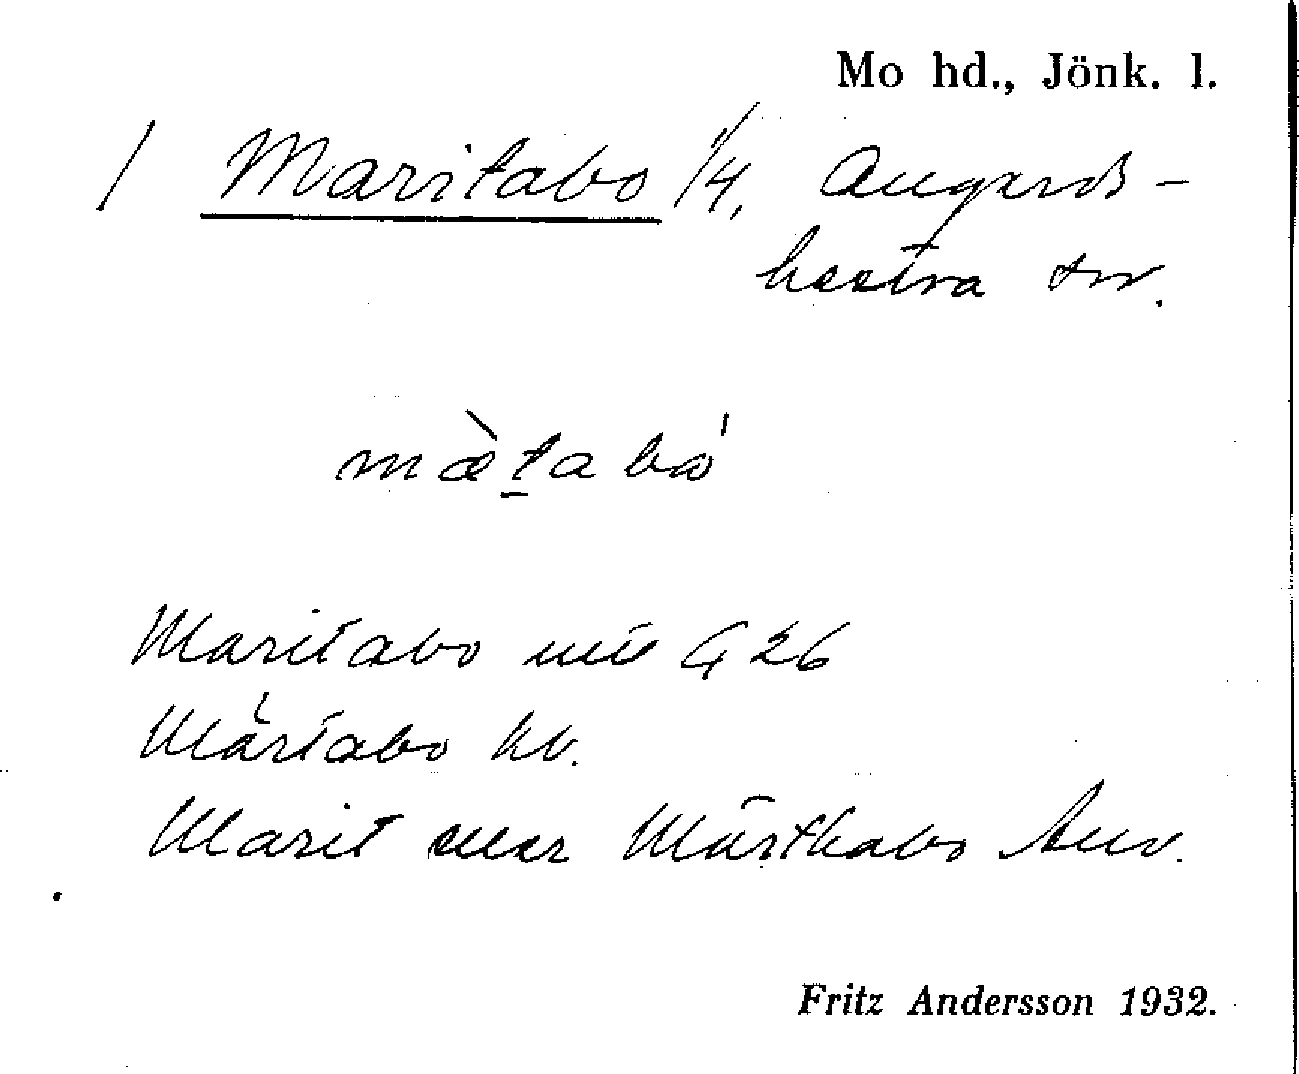 Mo hd., Jönk. l.
/ Maritabo 1/4, Angerds-
hestra sn.
mæ̀ṯabó
Maritabo G 26
Märtabo kv.
Marit eller Märthabo Anv.
Fritz Andersson 1932.